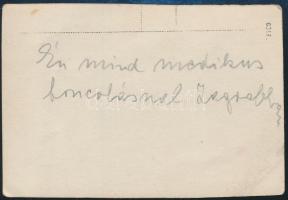 Én mind medikus
boncolásnál Zagrabb